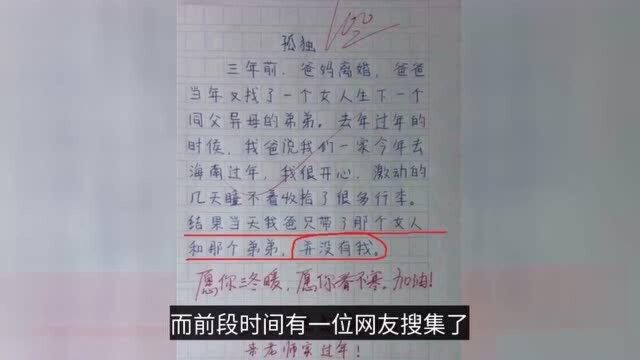 100
孤独
三年前,爸妈离婚,爸爸
当年又找了一个女人生下一个
同父异母的弟弟。去年过年的
时候,我爸说我们一家今年去
海南过年,我很开心,激动的
几天睡不着收拾了很多行李。
结果当天我爸只带了那个女人
和那个弟弟,并没有我。
愿你三冬暖,愿你春不寒。加油!
而前段时间有一位网友搜集了
老师家过年!